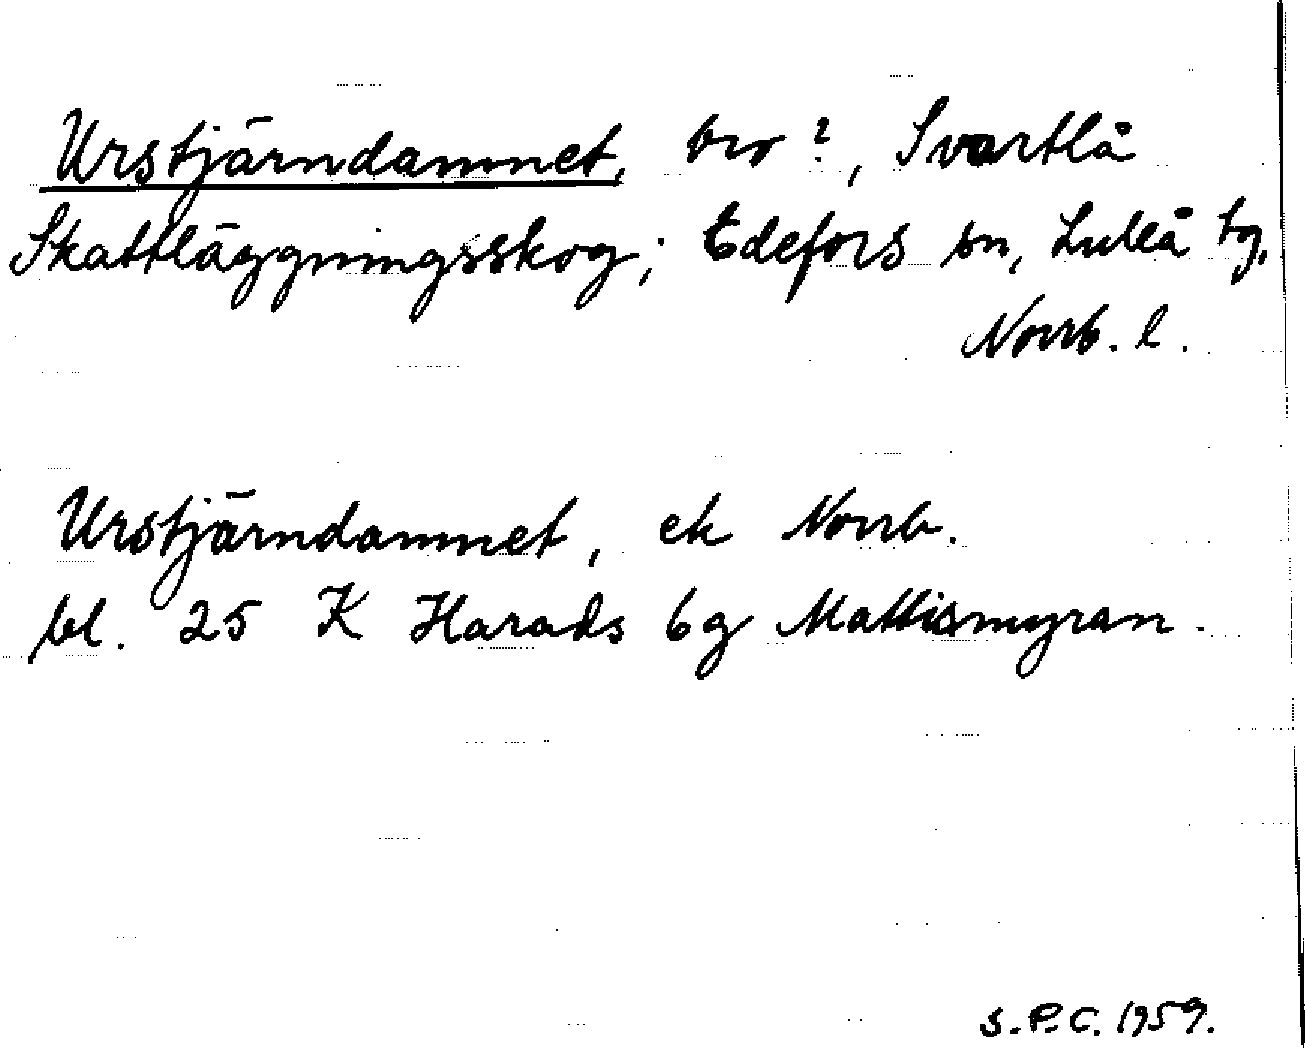 Urstjärndammet, bro?, Svartlå
Skattläggningsskog; Edefors sn, Luleå tg,
Norrb. l.
Urstjärndammet, ek Norrb.
bl. 25 K Harads 6g Mattismyran.
S.P.C. 1959.